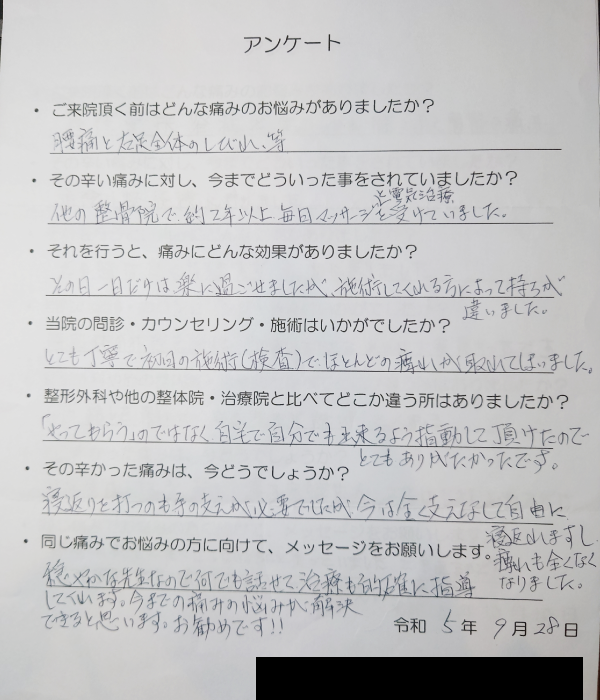 アンケート
・ご来院頂く前はどんな痛みのお悩みがありましたか？
腰痛と右足全体のしびれ、等
・その辛い痛みに対し、今までどういった事をされていましたか？
と電気治療
他の整骨院で、約2年以上毎日マッサージを受けていました。
・それを行うと、痛みにどんな効果がありましたか？
その日一日だけは楽に過ごせましたが、施術してくれる方によって持ちが
違いました。
・当院の問診・カウンセリング・施術はいかがでしたか？
とても丁寧で初回の施術(検査)でほとんどの痛みが取れてしまいました。
・整形外科や他の整体院・治療院と比べてどこか違う所はありましたか？
「やってもらう」のではなく自宅で自分でも出来るよう指動して頂けたので
とてもあり成たかったです。
・その辛かった痛みは、今どうでしょうか？
寝返りを打つのも手の支えが必要でしたが、今は全く支えなしで自由に
寝返れますし
痛みも全くなく
なりました。
・同じ痛みでお悩みの方に向けて、メッセージをお願いします。
穏やかな先生なので何でも話せて治療も的確に指導
してくれます。今までの痛みの悩みが解決
できると思います。お勧めです!!
令和 5年 9月28日